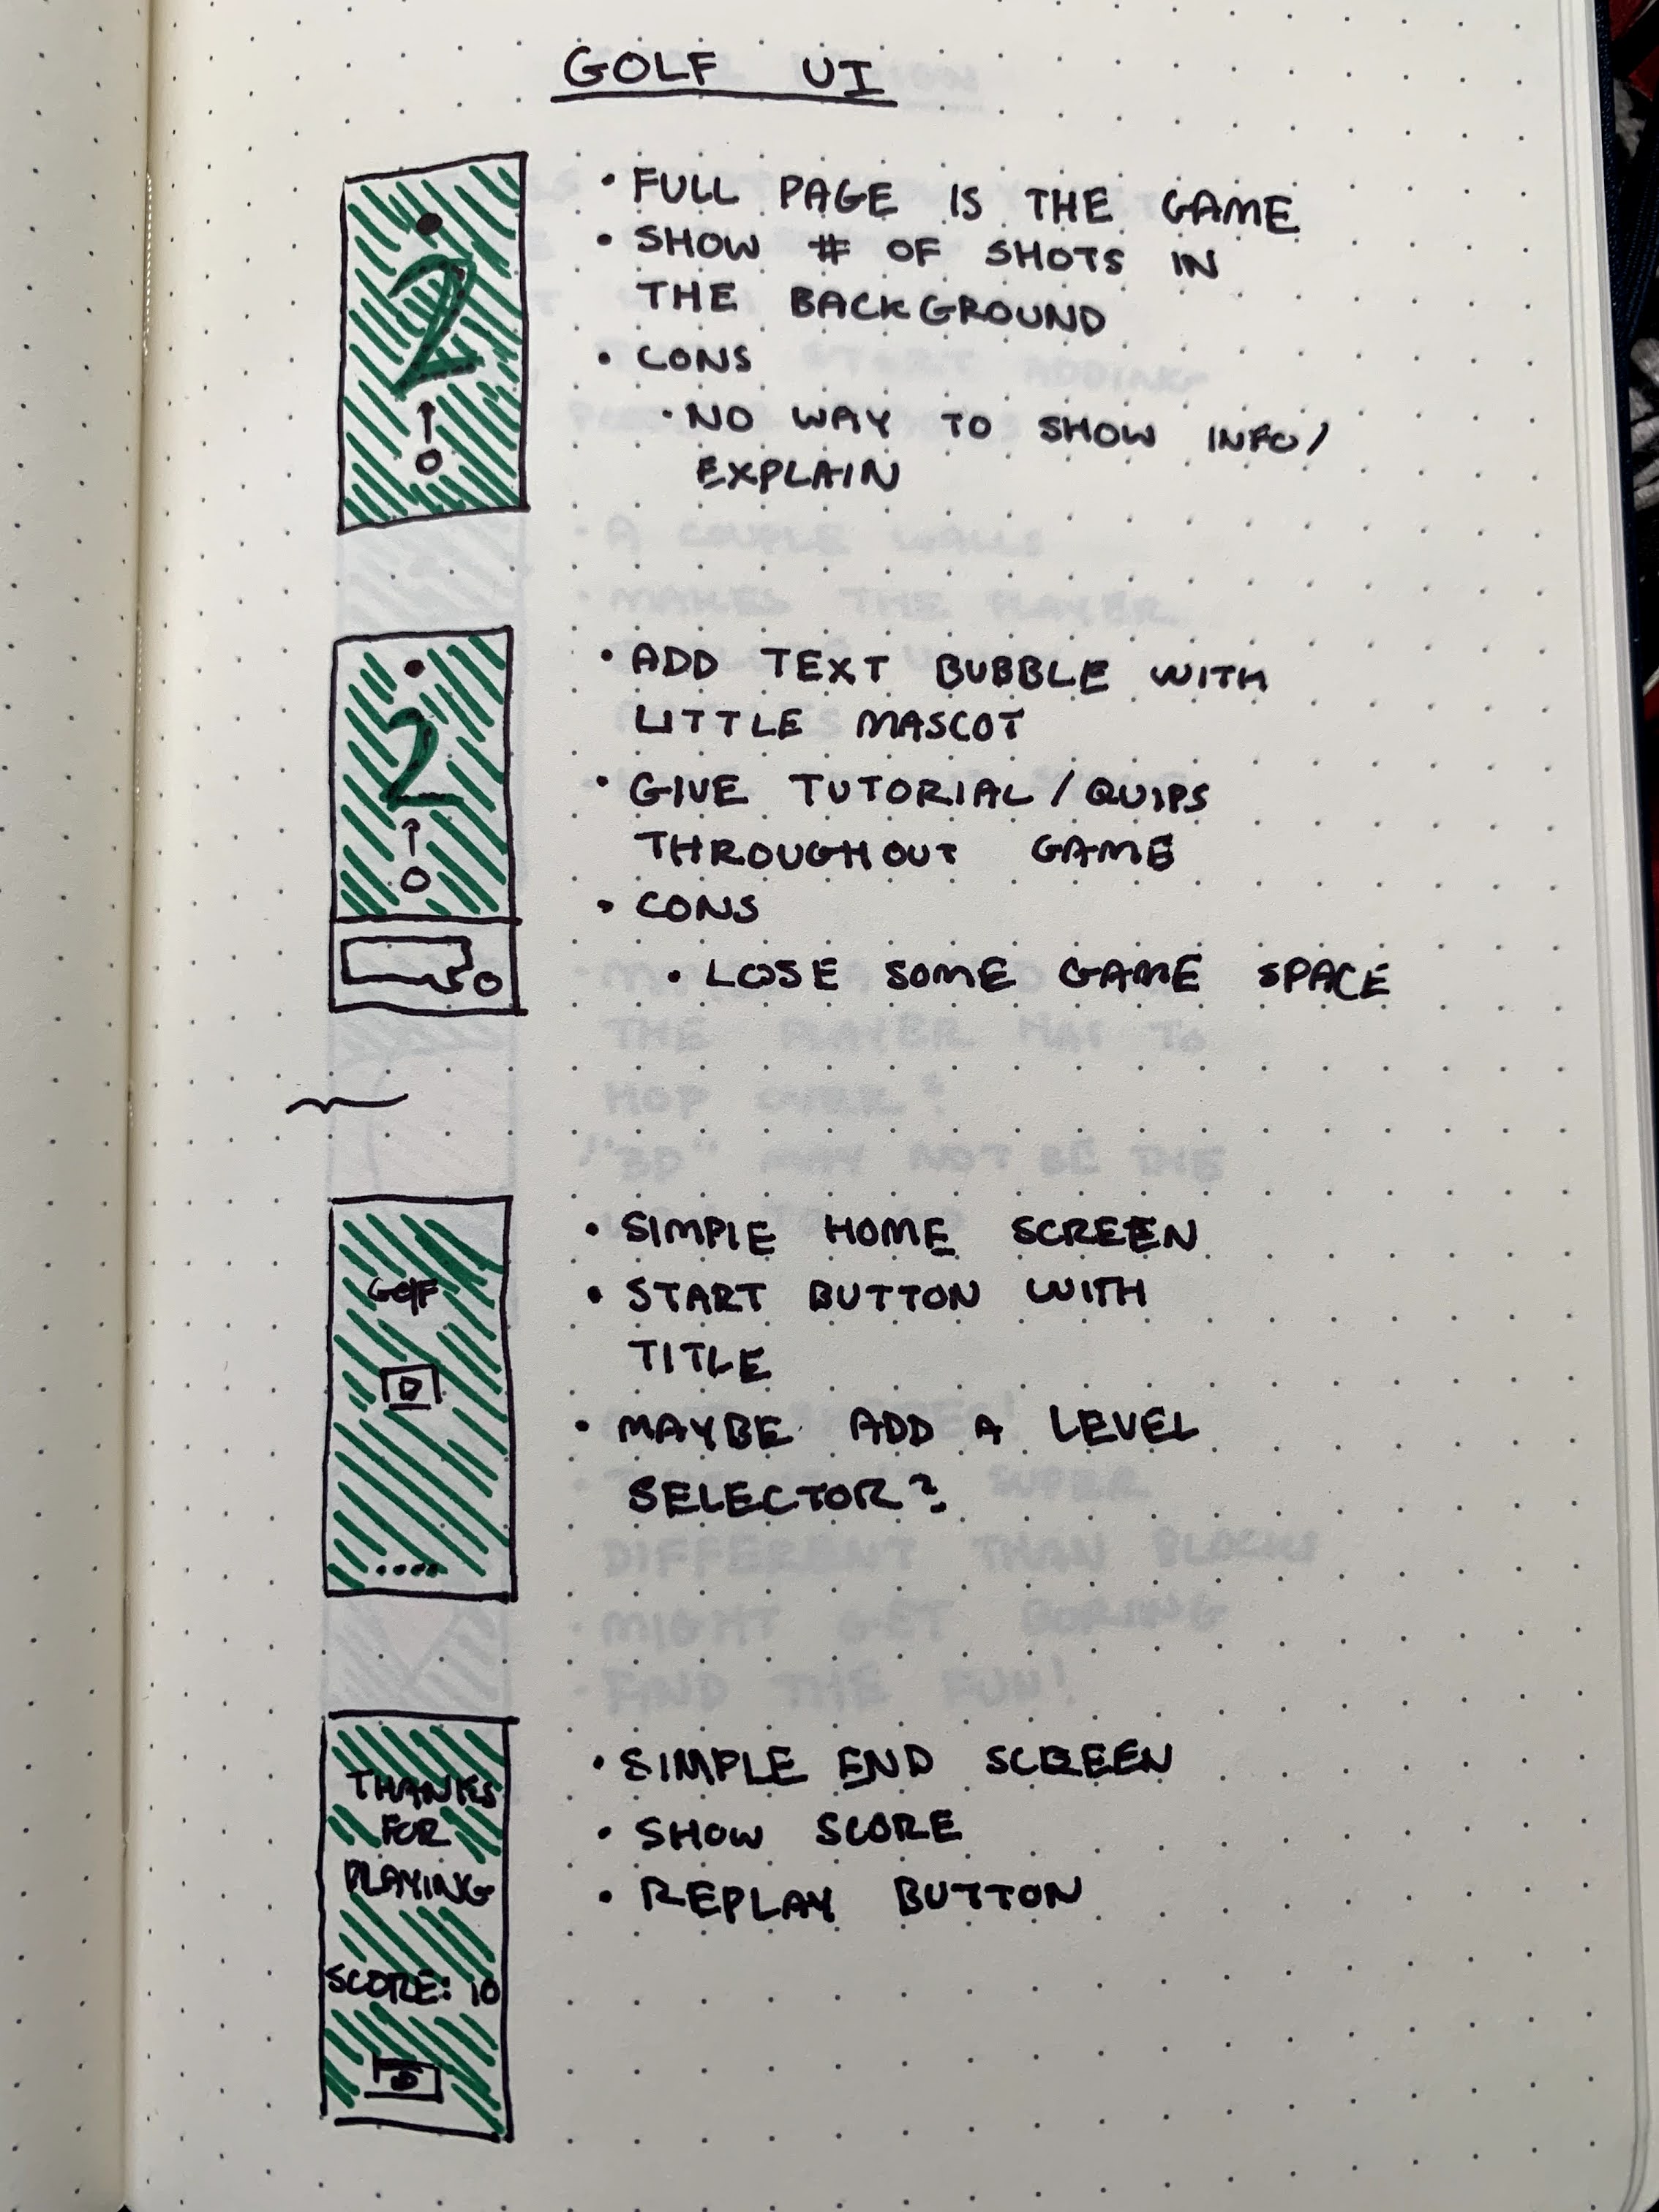 GOLF UI
2
• FULL PAGE IS THE GAME
• SHOW # OF SHOTS IN
THE BACKGROUND
• CONS
• NO WAY TO SHOW INFO/
EXPLAIN
2
• ADD TEXT BUBBLE WITH
LITTLE MASCOT
• GIVE TUTORIAL/QUIPS
THROUGHOUT GAME
• CONS
• LOSE SOME GAME SPACE
GOLF
• SIMPLE HOME SCREEN
• START BUTTON WITH
TITLE
• MAYBE ADD A LEVEL
SELECTOR?
THANKS
FOR
PLAYING
SCORE: 10
• SIMPLE END SCREEN
• SHOW SCORE
• REPLAY BUTTON